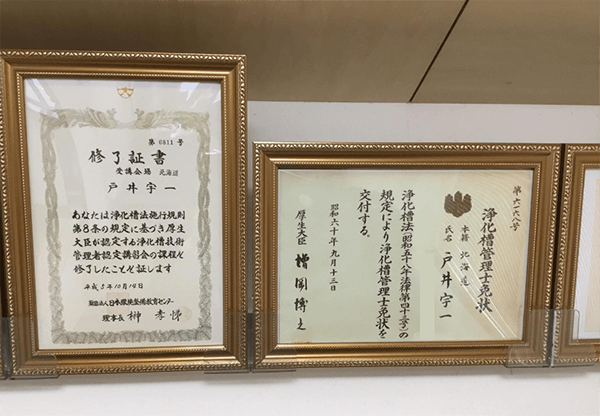 第 6811 号
修了証書
受講会場 北海道
戸井宇一
あなたは浄化槽法施行規則
第8条の規定に基づき厚生
大臣が認定する浄化槽技術
管理者認定講習会の課程を
修了したことを証します
平成5年10月14日
財団法人日本環境整備教育センター
理事長 榊 孝悌
第六二六八号
浄化槽管理士免状
本籍 北海道
氏名 戸井宇一
浄化槽法(昭和五十八年法律第四十三号)の
規定により浄化槽管理士免状を
交付する。
昭和六十年九月十三日
厚生大臣 増岡博之